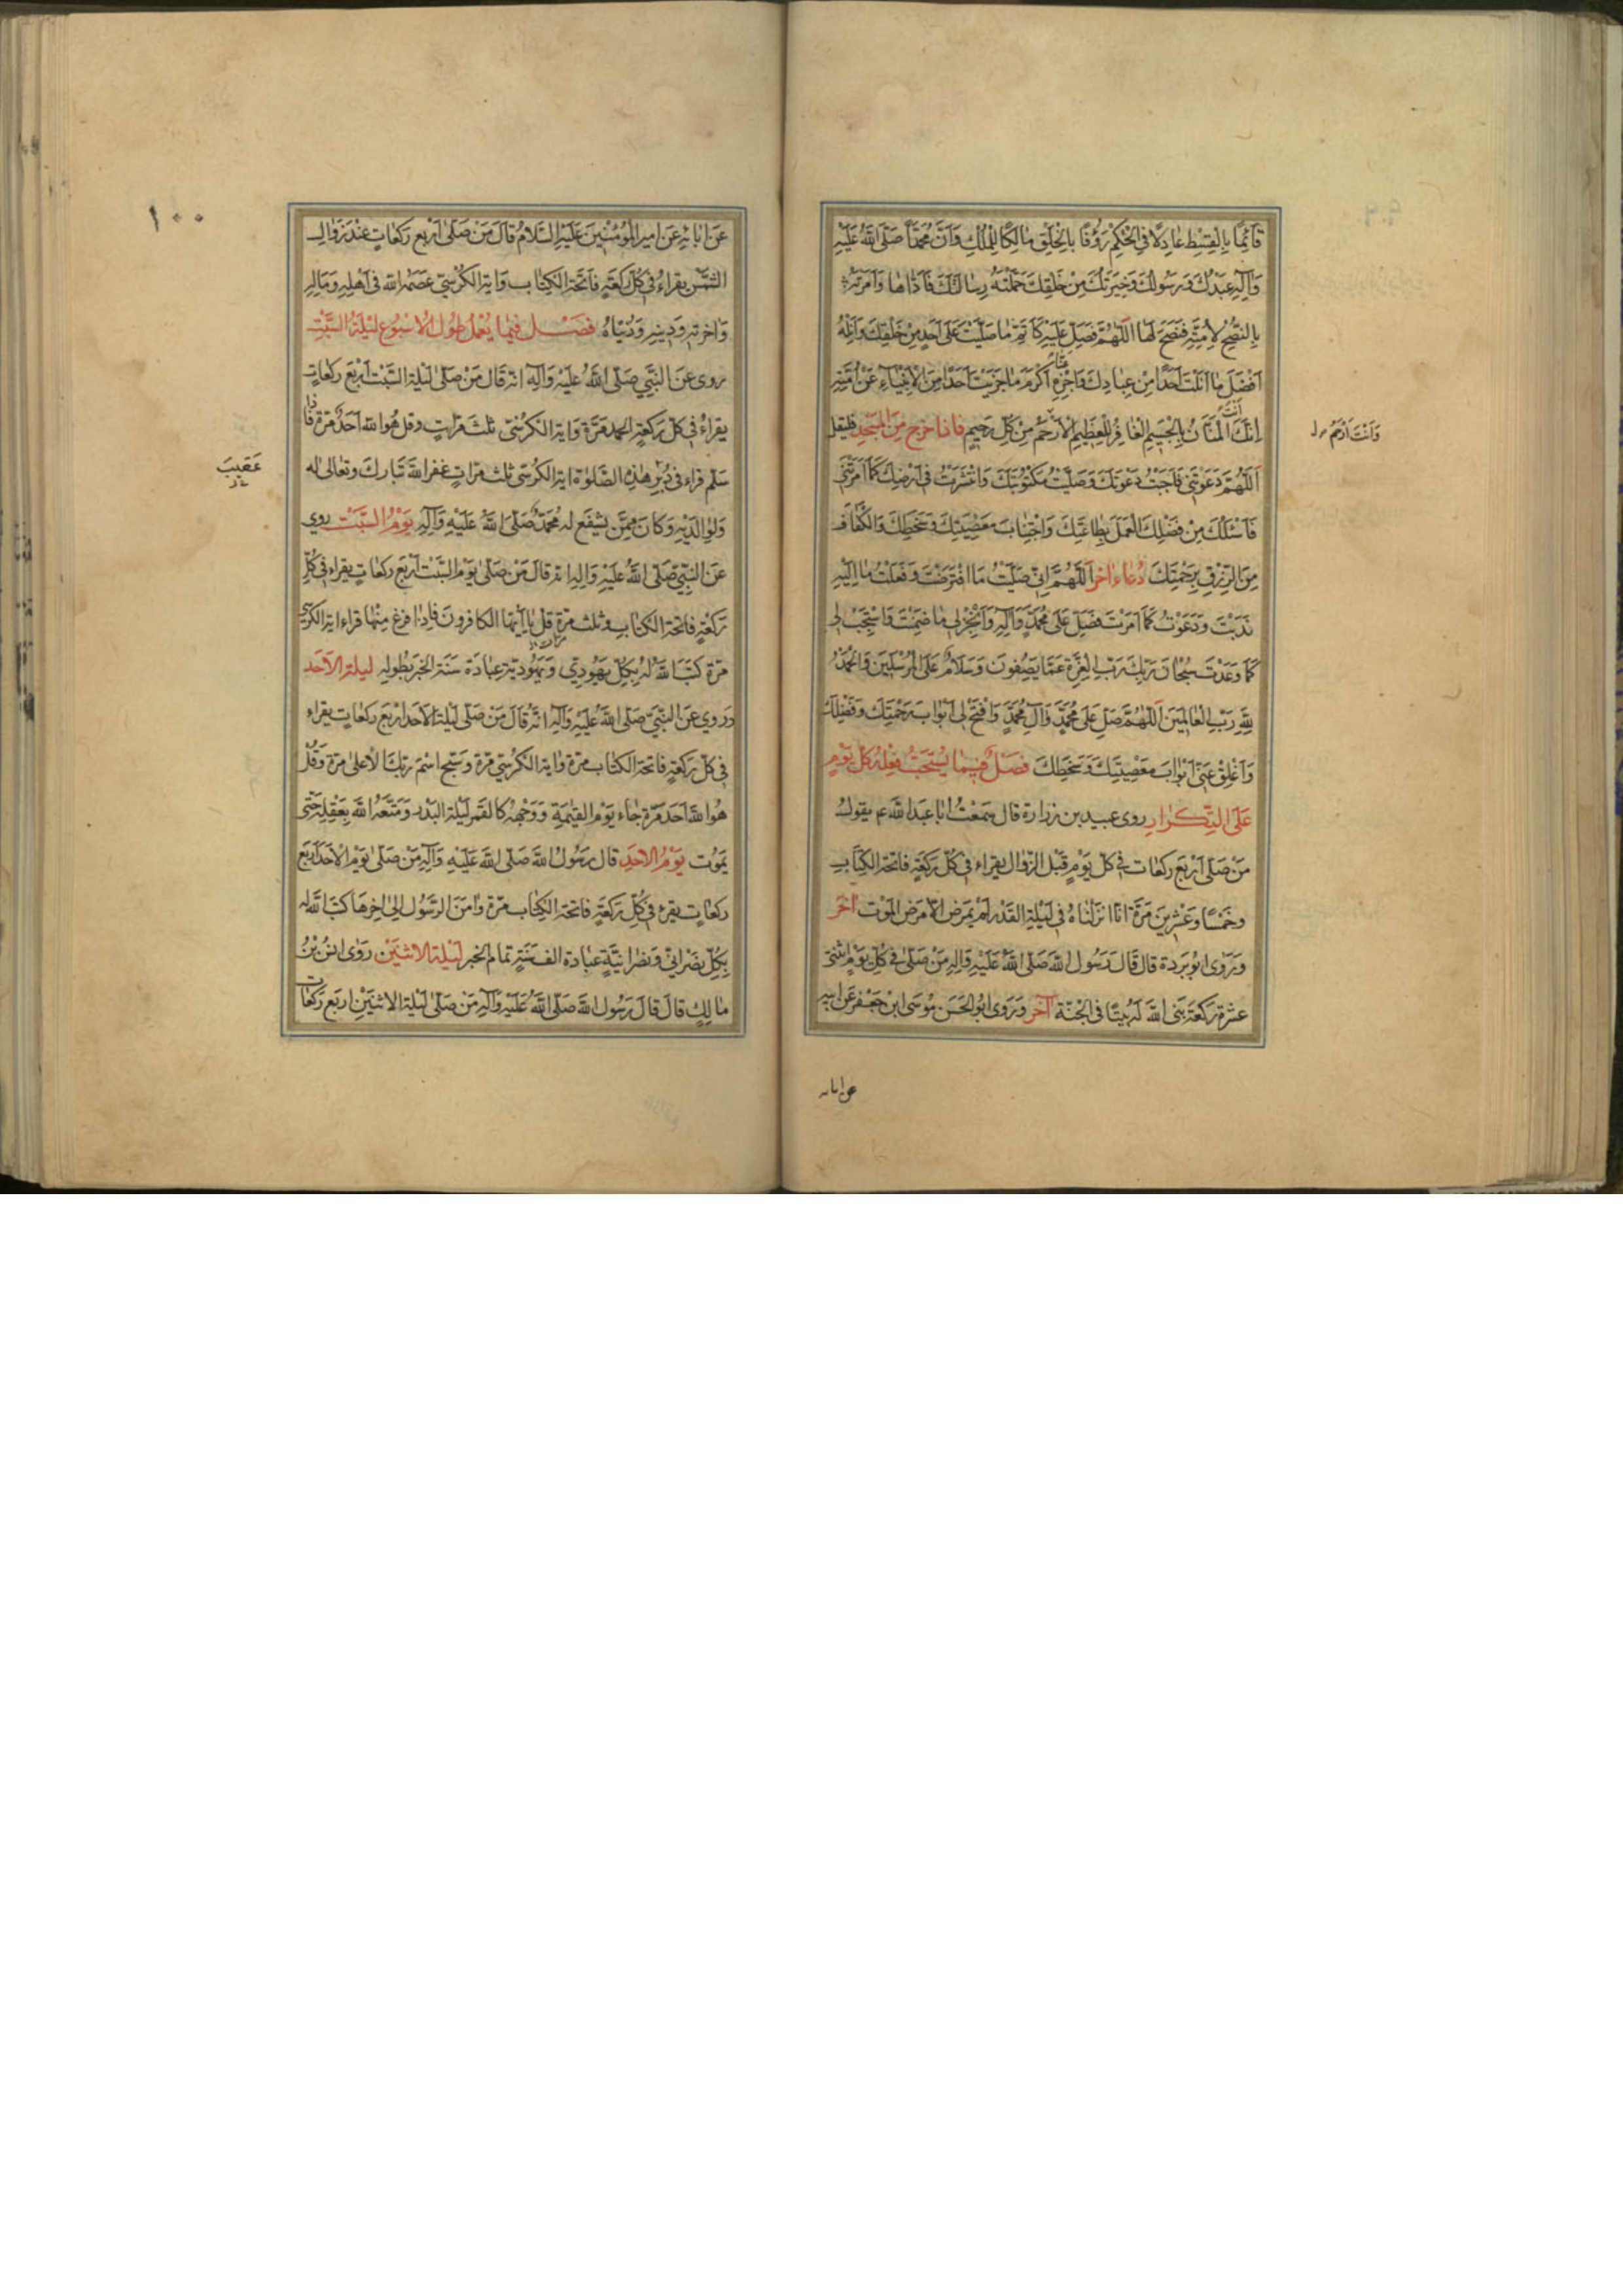 قَآئِمًا بِالْقِسْطِ عٰادِلًا فِى الْحُكْمِ رَؤُفًا بِالْخَلْقِ مٰالِكًا لِلْمُلْكِ وَاَنَّ مُحَمَّدًا صَلَّى اللهُ عَلَيْهِ
وَآلِهِ عَبْدُكَ وَرَسُولُكَ وَخِيَرَتُكَ مِنْ خَلْقِكَ حَمَّلْتَهُ رِسٰالَتَكَ فَاَدّٰاهٰا وَاَمَرْتَهُ
بِالنُّصْحِ لِاُمَّتِهِ فَنَصَحَ لَهٰا اَللّٰهُمَّ فَصَلِّ عَلَيْهِ كَاَتَمِّ مٰا صَلَّيْتَ عَلٰى اَحَدٍ مِنْ خَلْقِكَ وَاٰتِهِ
اَفْضَلَ مٰا اٰتَيْتَ اَحَدًا مِنْ عِبٰادِكَ وَاجْزِهِ عَنّٰا اَكْرَمَ مٰا جَزَيْتَ اَحَدًا مِنَ الْاَنْبِيٰآءِ عَنْ اُمَّتِهِ
اِنَّكَ اَنْتَ الْمَنّٰانُ بِالْجَسِيمِ الْغٰافِرُ لِلْعَظِيمِ الْاَرْحَمُ مِنْ كُلِّ رَحِيمٍ فاذا خرج من المسجد فليقل
وَاَنْتَ اَرْحَمُ
اَللّٰهُمَّ دَعَوْتَنِى فَاَجَبْتُ دَعْوَتَكَ وَصَلَّيْتُ مَكْتُوبَتَكَ وَانْتَشَرْتُ فِى اَرْضِكَ كَمٰا اَمَرْتَنِى
فَاَسْئَلُكَ مِنْ فَضْلِكَ الْعَمَلَ بِطٰاعَتِكَ وَاجْتِنٰابَ مَعْصِيَتِكَ وَسَخَطِكَ وَالْكَفٰافَ
مِنَ الرِّزْقِ بِرَحْمَتِكَ دُعٰاء اٰخر اَللّٰهُمَّ اِنِّى صَلَّيْتُ مَا افْتَرَضْتَ وَفَعَلْتُ مٰا اِلَيْهِ
نَدَبْتَ وَدَعَوْتُ كَمٰا اَمَرْتَ فَصَلِّ عَلٰى مُحَمَّدٍ وَآلِهِ وَاَنْجِزْ لِى مٰا ضَمِنْتَ وَاسْتَجِبْ لِى
كَمٰا وَعَدْتَ سُبْحٰانَ رَبِّكَ رَبِّ الْعِزَّةِ عَمّٰا يَصِفُونَ وَسَلَامٌ عَلَى الْمُرْسَلِينَ وَالْحَمْدُ
لِلّٰهِ رَبِّ الْعٰالَمِينَ اَللّٰهُمَّ صَلِّ عَلٰى مُحَمَّدٍ وَآلِ مُحَمَّدٍ وَافْتَحْ لِى اَبْوٰابَ رَحْمَتِكَ وَفَضْلِكَ
وَاَغْلِقْ عَنِّى اَبْوٰابَ مَعْصِيَتِكَ وَسَخَطِكَ فَصْلٌ فِيمٰا يُسْتَحَبُّ فِعْلُهُ كُلَّ يَوْمٍ
عَلَى التِّكْرٰارِ روى عبيد بن زرارة قال سَمِعْتُ ابا عبدالله ع يقولُ
مَنْ صَلّٰى اَرْبَعَ رَكَعٰاتٍ فِى كُلِّ يَوْمٍ قَبْلَ الزَّوٰالِ يَقْرَاءُ فِى كُلِّ رَكْعَةٍ فَاتِحَةَ الْكِتٰابِ
وخَمْسًا وعشْرِينَ مَرَّةً انّا انزلناهُ فى لَيْلَةِ الْقَدْرِ لَمْ يَمْرَضْ الّا مَرَضَ الْمَوْتِ آخر
ورَوٰى ابُو بَردة قال قٰالَ رَسُول الله صَلَّى اللهُ عَلَيْهِ وَآلِهِ مَنْ صَلّٰى فِى كُلِّ يَوْمٍ اثْنَتَىْ
عشرةَ رَكْعَةً بَنَى اللهُ لَهُ بَيْتًا فِى الْجَنَّةِ آخر وَرَوٰى ابُو الْحَسَنِ مُوسَى ابْنِ جَعْفَرٍ عَنْ ابيه
عن ابائه
١٠٠
عَنْ اٰبٰائِهِ عَنْ اميرِ الْمُؤْمِنِينَ عَلَيْهِ السَّلَامُ قٰالَ مَنْ صَلّٰى اَرْبَعَ رَكَعٰاتٍ عِنْدَ زَوٰالِ
الشَّمْسِ يَقْرَاءُ فِى كُلِّ رَكْعَةٍ فَاتِحَةَ الْكِتٰابِ وَاٰيَةَ الْكُرْسِىِّ عَصَمَهُ اللهُ فِى اَهْلِهِ وَمٰالِهِ
وَاٰخرتِهِ وَدِينِهِ وَدُنْيٰاهُ فَصْلٌ فِيمٰا يُعْمَلُ طُولَ الْاُسْبُوعِ لَيْلَةُ السَّبْتِ
روى عَنِ النَّبِيِّ صَلَّى اللهُ عَلَيْهِ وَآلِهِ انّه قالَ مَنْ صَلّٰى لَيْلَةَ السَّبْتِ اَرْبَعَ رَكَعٰاتٍ
يقراءُ فى كلّ ركعةٍ الحمد مَرَّةً وَاٰيَةَ الكُرْسِىِّ ثلث مَرّٰاتٍ وقل هُوَ الله اَحَدٌ مَرَّةً فَاِذا
سَلَّمَ قراءَ فى دُبُرِ هٰذِهِ الصَّلوٰة اٰيَةَ الكُرْسِىِّ ثلث مرّاتٍ غَفَرَ اللهُ تَبٰارَكَ وَتعٰالى لَه
عَقِيبَ
وَلِوٰالِدَيْهِ وَكٰانَ مِمَّنْ يَشْفَعُ لَهُ مُحَمَّدٌ صَلَّى اللهُ عَلَيْهِ وَآلِهِ يَوْمُ السَّبْتِ روى
عَنِ النَّبِيِّ صَلَّى اللهُ عَلَيْهِ وَآلِهِ انّهُ قٰالَ مَنْ صَلّٰى يَوْمَ السَّبْتِ اَرْبَعَ رَكَعٰاتٍ يَقراءُ فِى كُلِّ
رَكْعَةٍ فَاتِحَةَ الْكِتٰابِ وثلث مرّات قل يا ايُّهَا الكافرون فَاِذا فَرغَ مِنْهٰا قراءَ ايةَ الكُرْسِىِّ
مَرَّةً كَتَبَ اللهُ لَهُ بِكُلِّ يَهُودِيٍّ وَيَهُودِيَّةٍ عِبٰادَةَ سَنَةٍ الخبر بِطُولِهِ ليلة الاحد
وَروِيَ عَنِ النَّبِيِّ صَلَّى اللهُ عَلَيْهِ وَآلِهِ انَّهُ قٰالَ مَنْ صَلّٰى لَيْلَةَ الْاَحَدِ ارْبَعَ رَكَعٰاتٍ يقراءُ
فى كلّ رَكْعَةٍ فَاتِحَةَ الكتٰابِ مرّةً وَايَةَ الكُرْسِيِّ مَرَّةً وسَبِّحِ اسْمَ ربِّكَ الاعْلى مرّةً وَقُلْ
هُوَ اللهُ اَحَدٌ مَرَّةً جٰاءَ يَوْمَ الْقِيٰمَةِ وَوَجْهُهُ كَالْقَمَرِ لَيْلَةَ الْبَدْرِ وَمَتَّعَهُ اللهُ بِعَقْلِهِ حَتّٰى
يَمُوتَ يَوْمُ الاحَدِ قالَ رَسُولُ اللهِ صَلَّى اللهُ عَلَيْهِ وَآلِهِ مَنْ صَلّٰى يَوْمَ الاَحَدِ اَرْبَعَ
رَكَعٰاتٍ يقرءُ فِى كُلِّ رَكْعَةٍ فَاتِحَةَ الْكِتٰابِ مَرَّةً وَاٰمَنَ الرَّسُولُ اِلٰى اٰخِرِهَا كَتَبَ اللهُ لَه
بِكُلِّ نَصْرٰانِيٍّ وَنَصْرٰانِيَّةٍ عِبٰادَةَ الف سَنَةٍ تمام الخبر لَيْلَة الاثْنَيْنِ رَوٰى انَسُ بْنُ
مٰالِكٍ قالَ قالَ رَسُولُ اللهِ صَلَّى اللهُ عَلَيْهِ وَآلِهِ مَنْ صَلّٰى لَيْلَةَ الاثْنَيْنِ اربَعَ رَكَعٰاتٍ